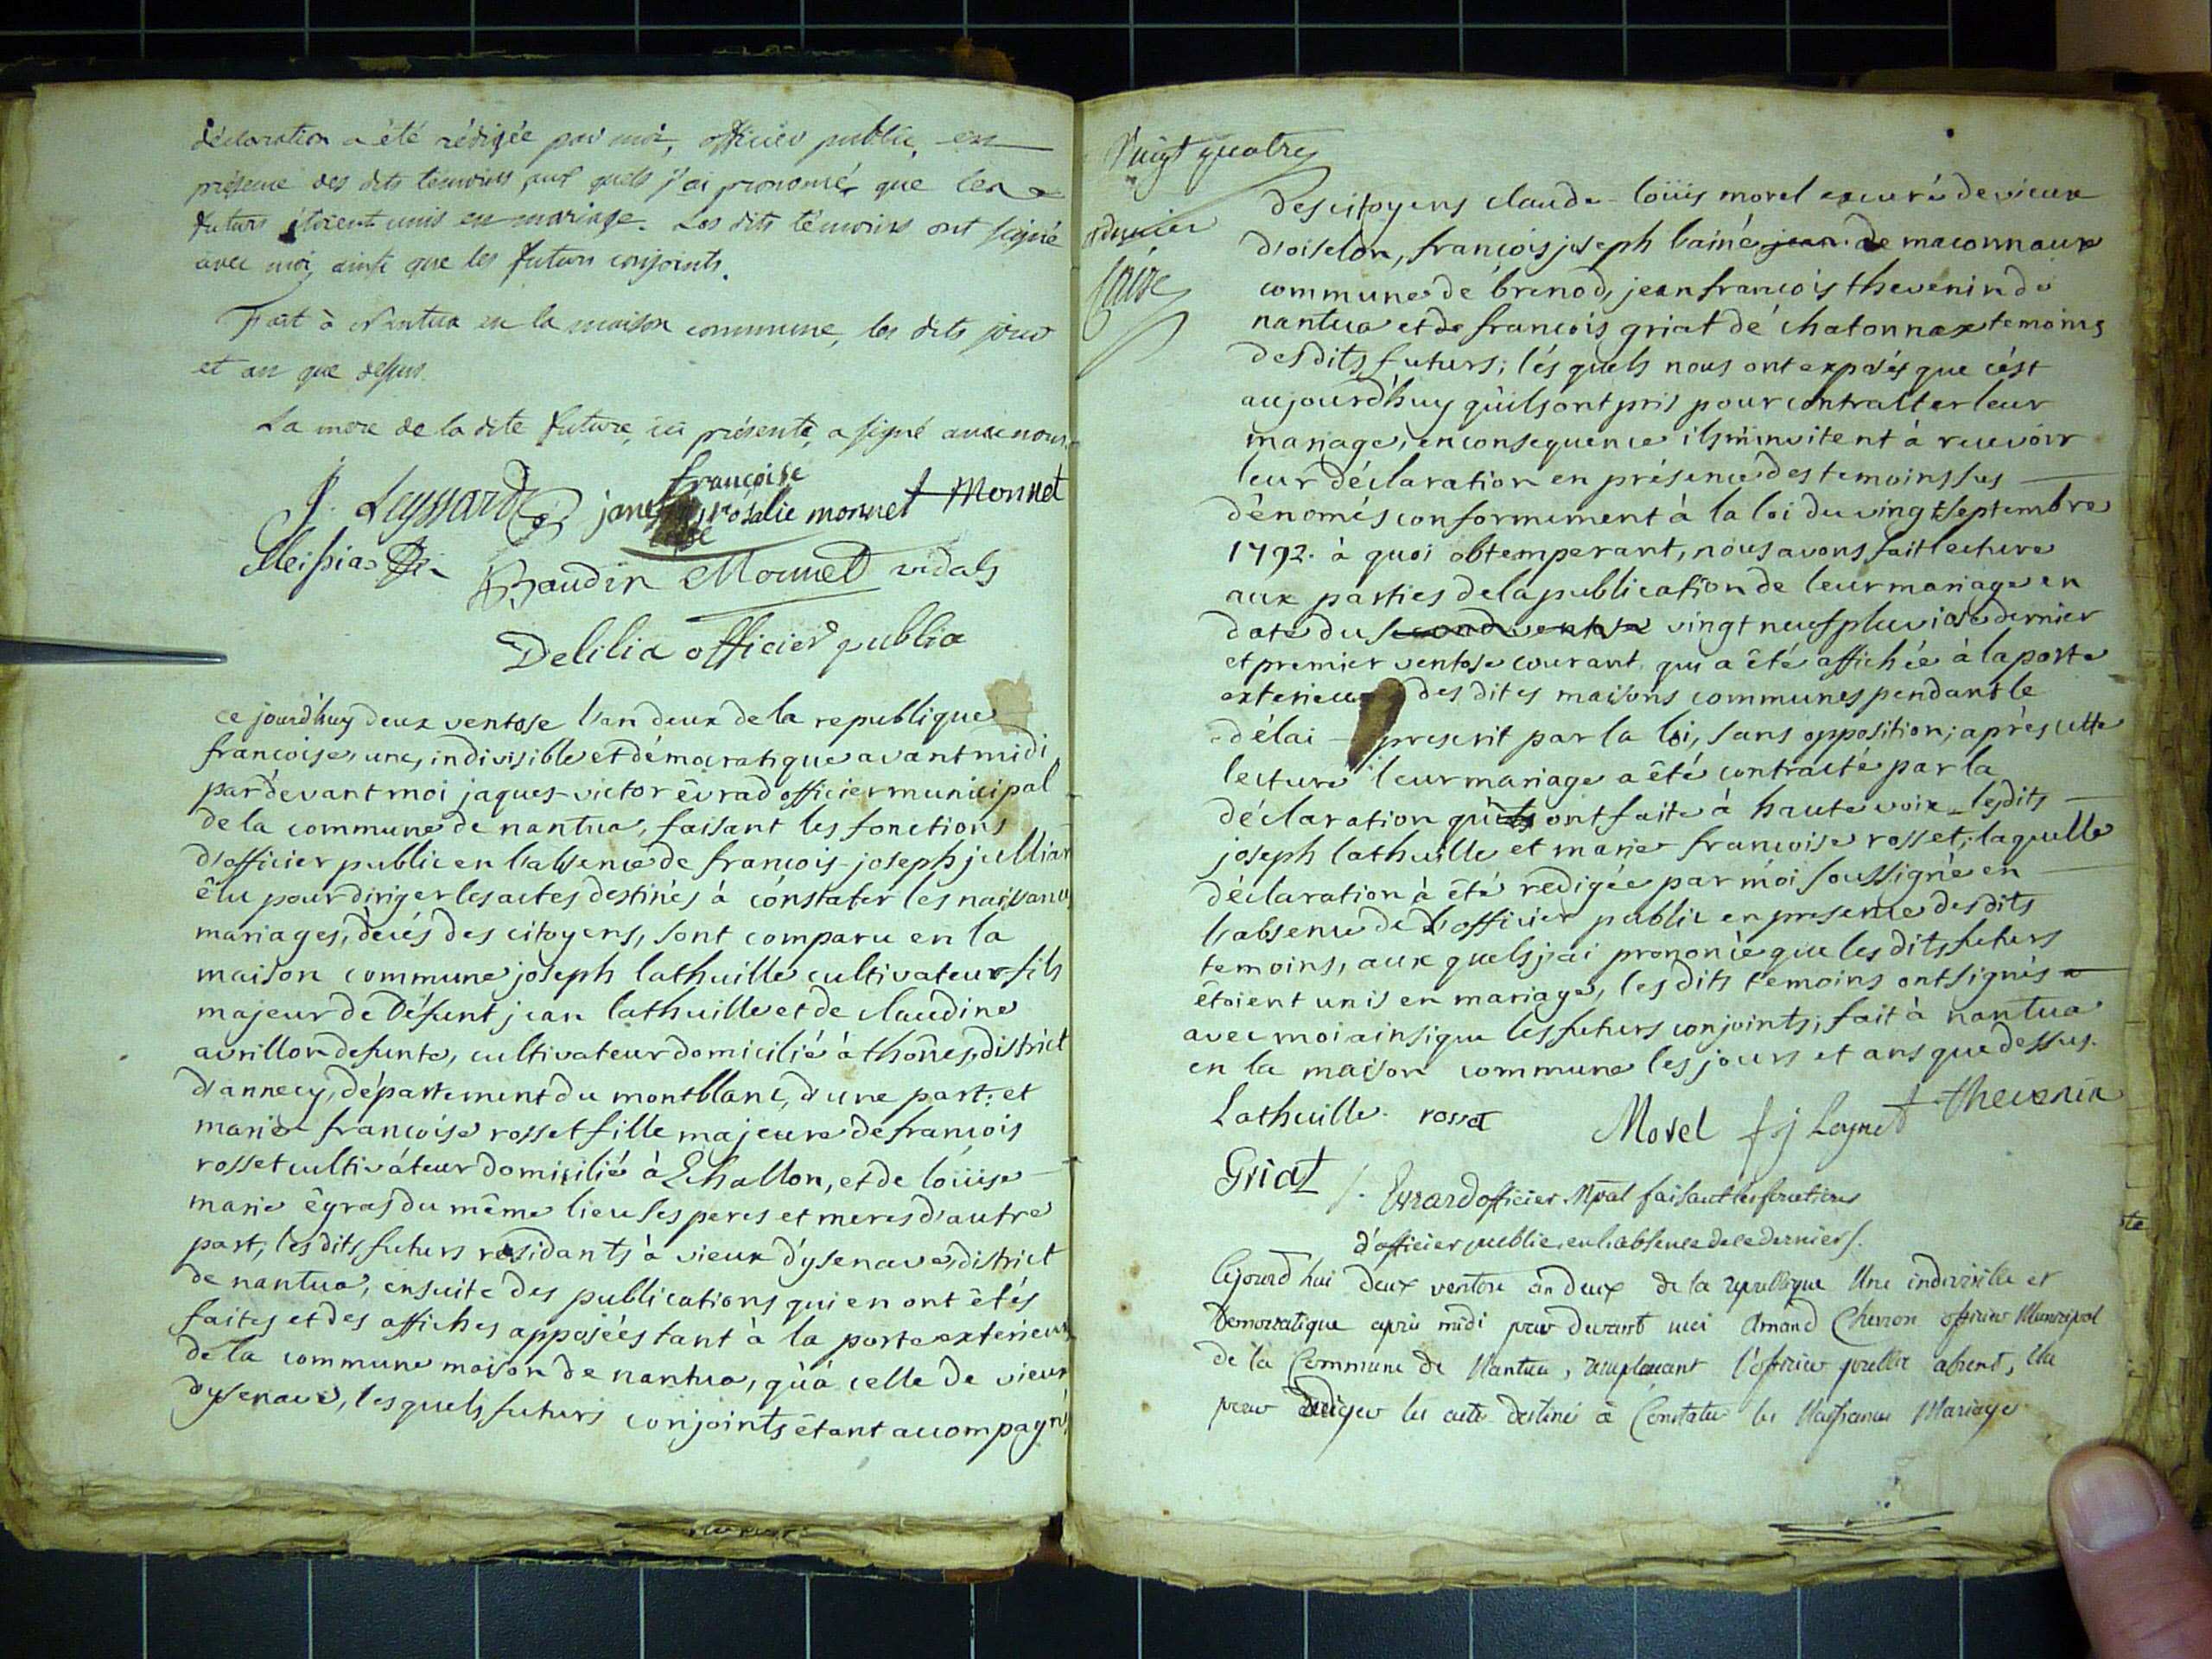 déclaration a été rédigée par moi, officier public, en
présence des dits témoins aux quels j'ai prononcé que les
futurs étoient unis en mariage. Les dits témoins ont signé
avec moi, ainsi que les futurs conjoints.
Fait à Nantua en la maison commune, les dits jour
et an que dessus.
La mere de la dite future, ici présente, a signé avec nous.
françoise
J. Leyssard rosalie monnet Monnet
Baudin Monnet vidal
Delilia officier public
ce jourd'huy deux ventose l'an deux de la republique
francoise, une, indivisible et démocratique avant midi
pardevant moi jaques-victor êvrad officier municipal
de la commune de nantua, faisant les fonctions
d'officier public en l'absence de francois-joseph jullian
êlu pour diriger les actes destinés à constater les naissance
mariages, décés des citoyens, sont comparu en la
maison commune joseph lathuille cultivateur fils
majeur de défunt jean lathuille et de claudine
avrillon defunte, cultivateur domicilié à thônes, district
d'annecy, département du montblanc, d'une part: et
marie francoise rosset fille majeure de francois
rosset cultivateur domicilié à Echallon, et de loüise
marie êgras du même lieu ses peres et meres d'autre
part; les dits futurs residants à vieux d'ysenave, district
de nantua, ensuite des publications qui en ont êtés
faites et des affiches apposées tant à la porte exterieur
de la commune maison de nantua, qu'à celle de vieux
dysenave, lesquels futurs conjoints êtant accompagné
Vingt quatre
des citoyens claude-loüis morel excuré de vieux
d'oiselon, françois joseph lainé jean de maconnaux
commune de brenod, jean francois thevenin de
nantua et de francois griat de chatonnax temoins
desdits futurs; lésquels nous ont exposés que c'ést
aujourd'huy qu'ils ont pris pour contracter leur
mariage, en consequence ils m'invitent à recevoir
leur déclaration en présence des temoins sus
dénomés conformement à la loi du vingt septembre
1792. à quoi obtemperant, nous avons fait lecture
aux parties de la publication de leur mariage en
date du second ventose vingt neuf pluviose dernier
et premier ventose courant qui a êté affichée à la porte
exterieur des dites maisons communes pendant le
délai prescrit par la loi, sans opposition; après cette
lecture leur mariage a êté contracté par la
déclaration qu'ils ont faite à haute voix lesdits
joseph lathuille et marie francoise rosset; laquelle
déclaration à êté redigée par moi soussigné en
l'absence de l'officier public en presence desdits
temoins, aux quels j'ai prononcé que les dits futurs
êtoient unis en mariage, les dits temoins ont signés
avec moi ainsi que les futurs conjoints; fait à nantua
en la maison commune les jours et ans que dessus.
Lathuille rosset Morel thevenin
Griat
Evrard officier Mpal faisant les fonctions
d'officier public en l'absence de ce dernier
Cejourd'hui deux ventose an deux de la republique Une indivisible et
Democratique après midi par devant moi Amand Chevron officier Municipal
de la Commune de Nantua, remplacant l'officier public absent, élu
pour rediger les acte destiné à Constater les Naissance Mariage